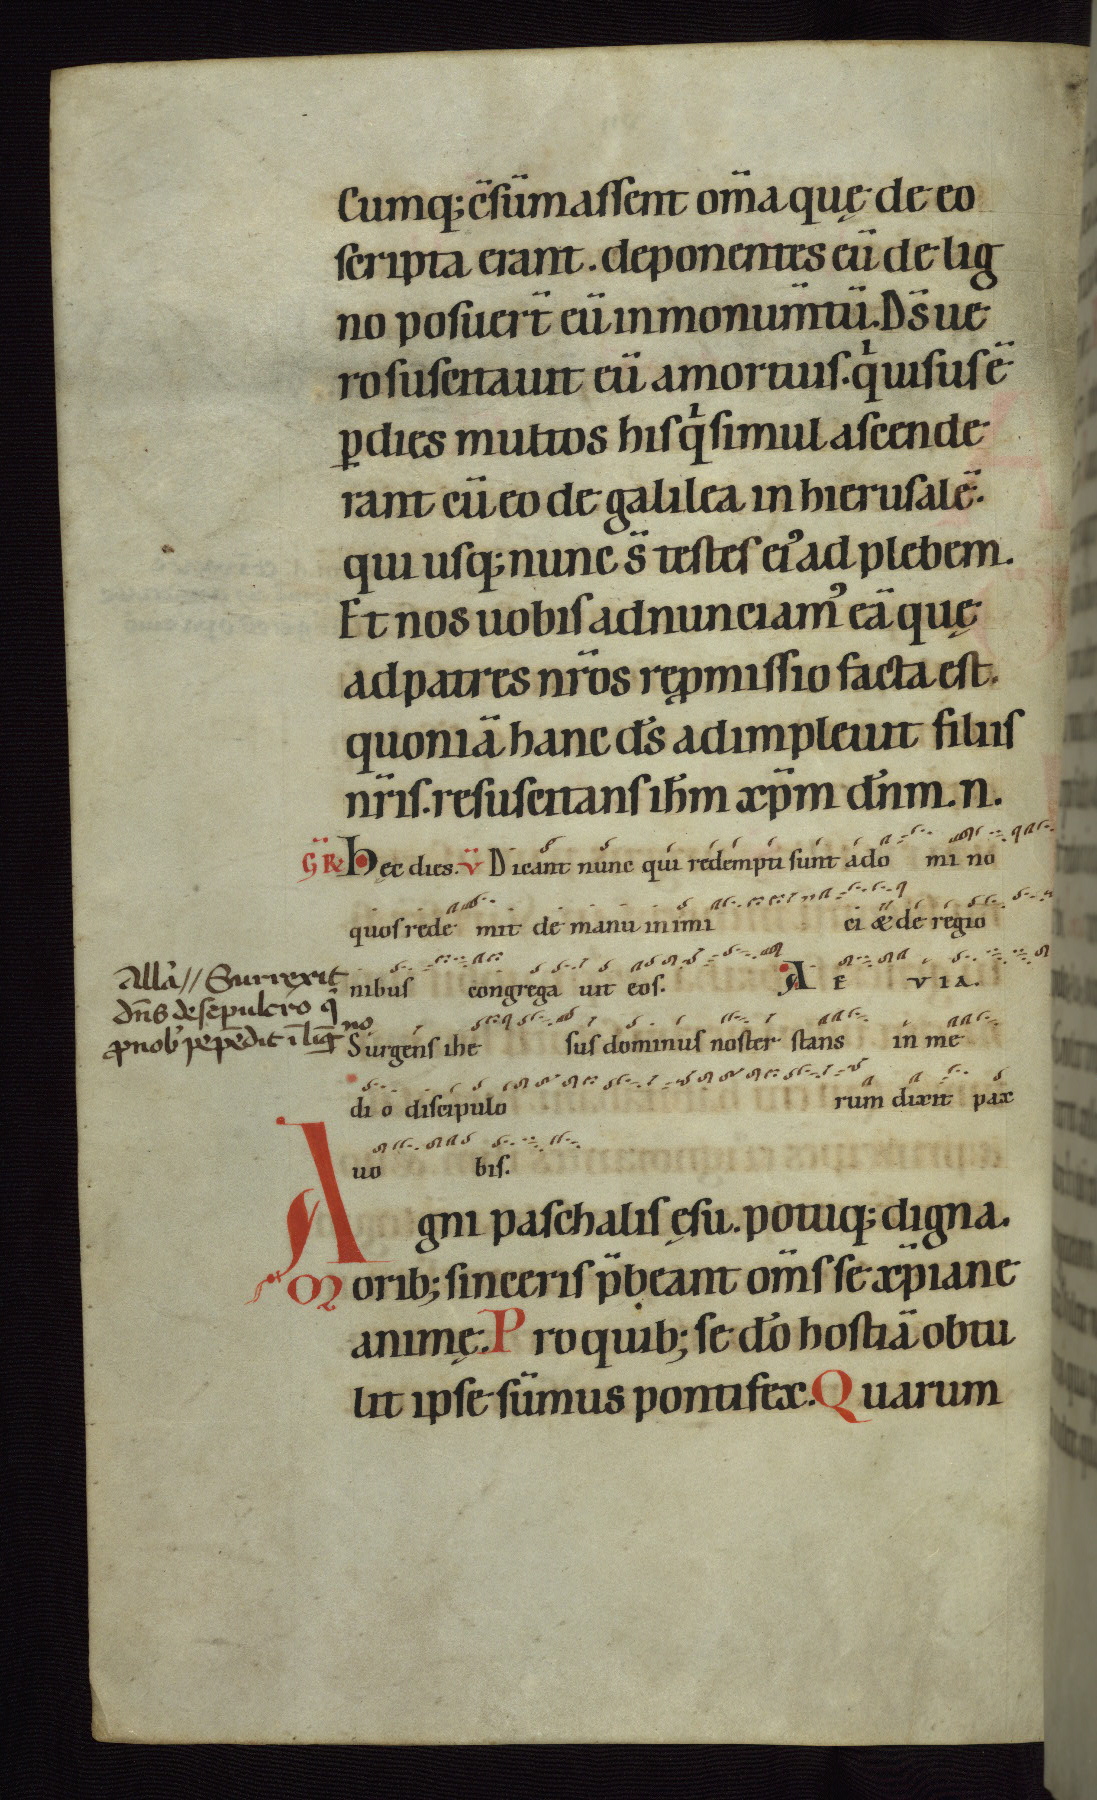 Cumq; c̄sūmassent om̄a quę de eo
scripta erant. deponentes eū de lig
no posuer̄t eū in monum̄tū. D̄s ue
ro suscitauit eū a mortuis. qͥ uisus ē
ꝑ dies multos his qͥ simul ascende
rant cū eo de galilea in hierusalē.
qui usq; nunc s̄ testes ei᾽ ad plebem.
Et nos uobis adnunciam᾽ eā quę
ad patres nr̄os rep̄missio facta est.
quoniā hanc d̄s adimpleuit filiis
nr̄is. resuscitans ih̄m xp̄m d̄nm. n.
GR Hęc dies. V Dicant nunc qui redempti sunt a do mi no
quos rede mit de manu inimi ci & de regio
nibus congrega uit eos. A E V I A.
All̄a // Surrexit
dn̄s de sepulcro qͥ
ꝓ nob᾽ pepēdit ī lig̅
no
Surgens ihe sus dominus noster stans in me
di o discipulo rum dixit pax
uo bis.
Agni paschalis ęsu. potuq; digna.
Morib; sinceris p̄beant om̄s se xp̄iane
animę. Pro quib; se d̄o hostiā obtu
lit ipse sūmus pontifex. Quarum